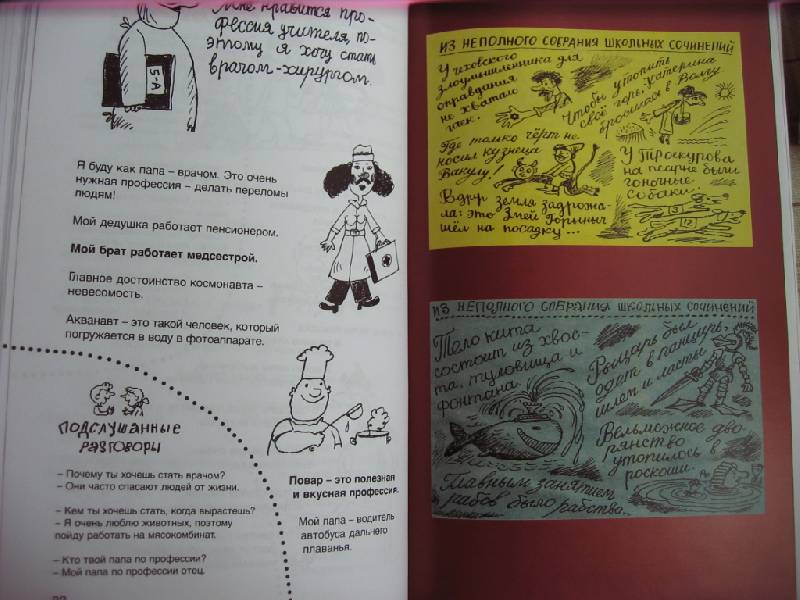 Мне нравится про-
фессия учителя, по-
этому я хочу стать
врачом-хирургом.
5-А
Я буду как папа – врачом. Это очень
нужная профессия – делать переломы
людям!
Мой дедушка работает пенсионером.
Мой брат работает медсестрой.
Главное достоинство космонавта –
невесомость.
Акванавт – это такой человек, который
погружается в воду в фотоаппарате.
ПОДСЛУШАННЫЕ
РАЗГОВОРЫ
– Почему ты хочешь стать врачом?
– Они часто спасают людей от жизни.
– Кем ты хочешь стать, когда вырастешь?
– Я очень люблю животных, поэтому
пойду работать на мясокомбинат.
– Кто твой папа по профессии?
– Мой папа по профессии отец.
Повар – это полезная
и вкусная профессия.
Мой папа – водитель
автобуса дальнего
плаванья.
ИЗ НЕПОЛНОГО СОБРАНИЯ ШКОЛЬНЫХ СОЧИНЕНИЙ
У чеховского
злоумышленника для
оправдания
не хватало
гаек.
Чтобы утопить
своё горе, Катерина
бросилась в Волгу
Где только чёрт не
носил кузнеца
Вакулу!
У Троекурова
на псарне были
гоночные
собаки.
Вдруг земля задрожа-
ла: это Змей Горыныч
шёл на посадку...
ИЗ НЕПОЛНОГО СОБРАНИЯ ШКОЛЬНЫХ СОЧИНЕНИЙ
Тело кита
состоит из хвос-
та, туловища и
фонтана.
Рыцарь был
одет в панцирь,
шлем и ласты
Вельможное дво-
рянство
утопилось в
роскоши.
Главным занятием
рабов было рабство.